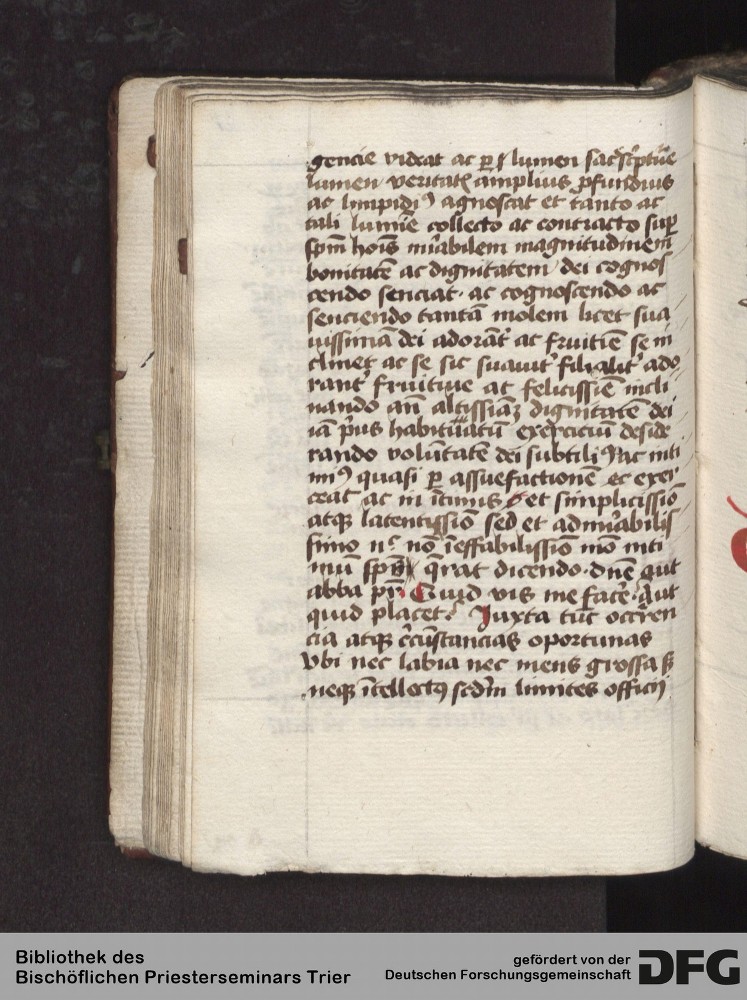 gencie videat ac p lumen sac͛sc͛ptu͛e
lumen veritat͛ amplius ꝓfundius
ac limpidiꝰ agnoscat et tanto ac
tali lumīe collecto ac contracto suꝑ
spm̄ hoīs mi͛abilem magnitudinem
bonitatē ac dignitatem dei cognos
cendo senciat · ac cognoscendo ac
senciendo tantā molem licet sua
uissimā dei adorāt͛ ac fruitiē se in
clinet ac se sic suauit͛ filialit͛ ado
rant͛ fruitiue ac felicissiē incli
nando an̄ altissiāȝ dignitatē dei
iā p͛us habituatū exerciciū deside
rando volūtatē dei subtiliꝰ ac inti
miꝰ quasi ꝑ assuefactionē ec exer
ceat ac in ītimis et simplicissiō
atqꝫ latentissiō sed et admi͛abilis
simo nō īeffabilissiō mō inti
mū q̄rat dicendo · dn̄e aut
abba pr̄ · Quid vis me face͛ · aut
quid placet · Juxta tūc occ͛ren
cia atqꝫ c͛cūstancias oportunas
vbi nec labia nec mens grossa sꝫ
neqꝫ ītellectꝰ scd͛m limites officij
Bibliothek des
Bischöflichen Priesterseminars Trier
gefördert von der
Deutschen Forschungsgemeinschaft
DFG